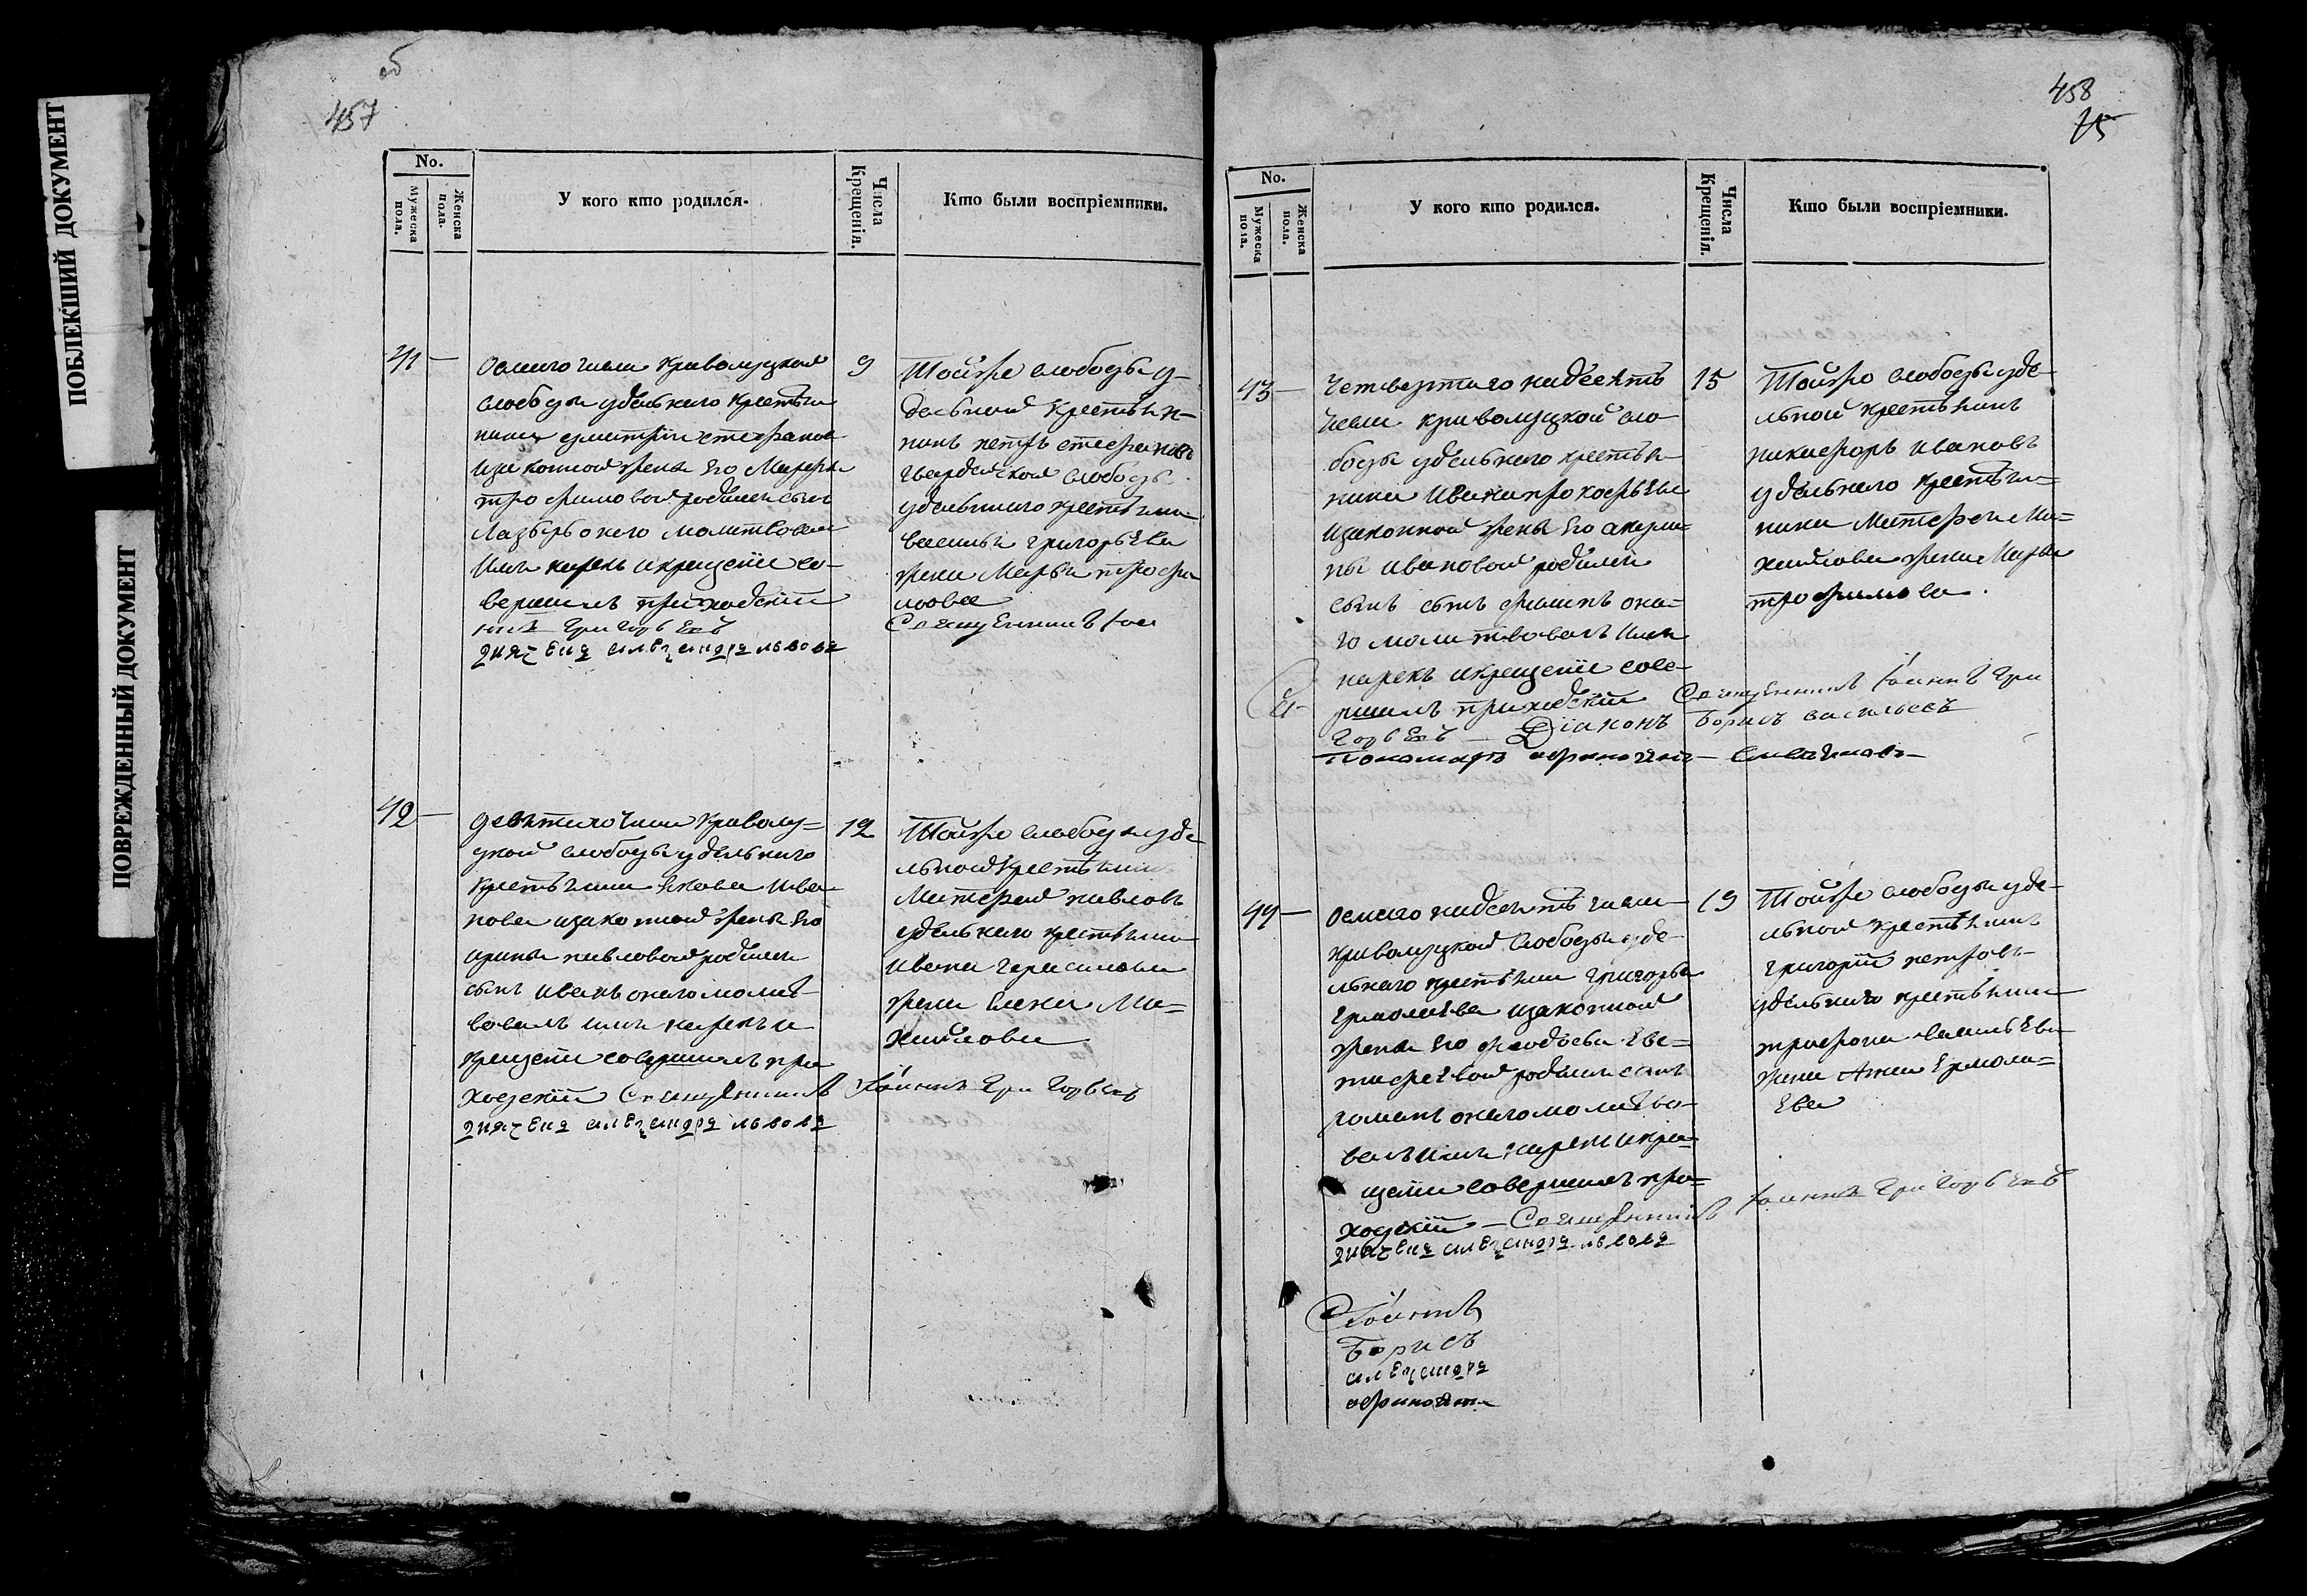 ПОБЛЕКШИЙ ДОКУМЕНТ
ПОВРЕЖДЕННЫЙ ДОКУМЕНТ
об
457
No.
Мужеска пола.
Женска пола.
У кого кто родился.
Числа Крещенія.
Кто были воспріемники.
41 —
Осмаго числа Криволуцкой
слободы удельнаго крестья
нина Дмитрія Стефанова
изаконной жены Его Марфы
трофимовой родился сынъ
Лазырь онаго молитвовалъ
Имя нарекъ икрещеніе со-
вершилъ приходскій
9
Тойже слободы у-
дельной крестьян-
инъ петръ стефановъ
гвардейской слободы
удельнаго крестьянина
василья григорьева
жена Марья трофи
мова
Священникъ Іоа
ннъ Григорьевъ
42 —
девятаго числа Криволу-
цкой слободы удельнаго
крестьянина Якова Ива
нова изаконной жены Его
ирины павловой родился
сынъ иванъ онаго молит-
вовалъ имя нарекъ и
крещеніе совершилъ при
ходскій Священникъ Іоаннъ Григорьевъ
12
Тойже слободы уде
льной крестьянинъ
Матфей павловъ
удельнаго крестьянина
ивана герасимова
жена Елена Ми=
хайлова
458
75
No.
Мужеска пола.
Женска пола.
У кого кто родился.
Числа Крещенія.
Кто были воспріемники.
43 —
Четвертаго надесять
числа криволуцкой сло-
боды удельнаго крестья-
нина Ивана прокофьева
изаконной жены Его акули-
ны ивановой родился
сынъ сынъ филипъ она-
го молитвовалъ имя
нарекъ икрещеніе сове-
ршилъ приходскій Священникъ Іоаннъ Гри
горьевъ — Діаконъ Борисъ васильевъ
Пономарь
15
Тойже слободы уде-
льной крестьянинъ
никифоръ ивановъ
удельнаго крестьян=
нина Матфея Ми=
хайлова жена Марья
трофимова.
44 —
осмаго надесять числа
криволуцкой слободы уде-
льнаго крестьянина григорья
Ермолаева изаконной
жены Его феодосьи Евс=
тифеевой родился сынъ
романъ онаго молитво-
валъ имя нарекъ икре=
щеніе совершилъ при=
ходскій — Священникъ Іоаннъ Григорьевъ
19
Тойже слободы уде-
льной крестьянинъ
григорій петровъ
удельнаго крестьянина
трифона васильева
жена Анна Ермола=
ева
Іоаннъ
Борисъ